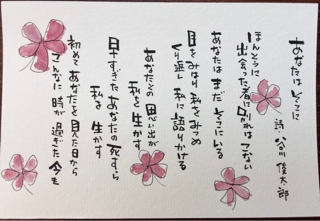 あなたはそこに
詩 谷川俊太郎
ほんとうに
出会った者に別れはこない
あなたはまだそこにいる
目をみはり私をみつめ
くり返し私に語りかける
あなたとの思い出が
私を生かす
早すぎたあなたの死すら
私を生かす
初めてあなたを見た日から
こんなに時が過ぎた今も